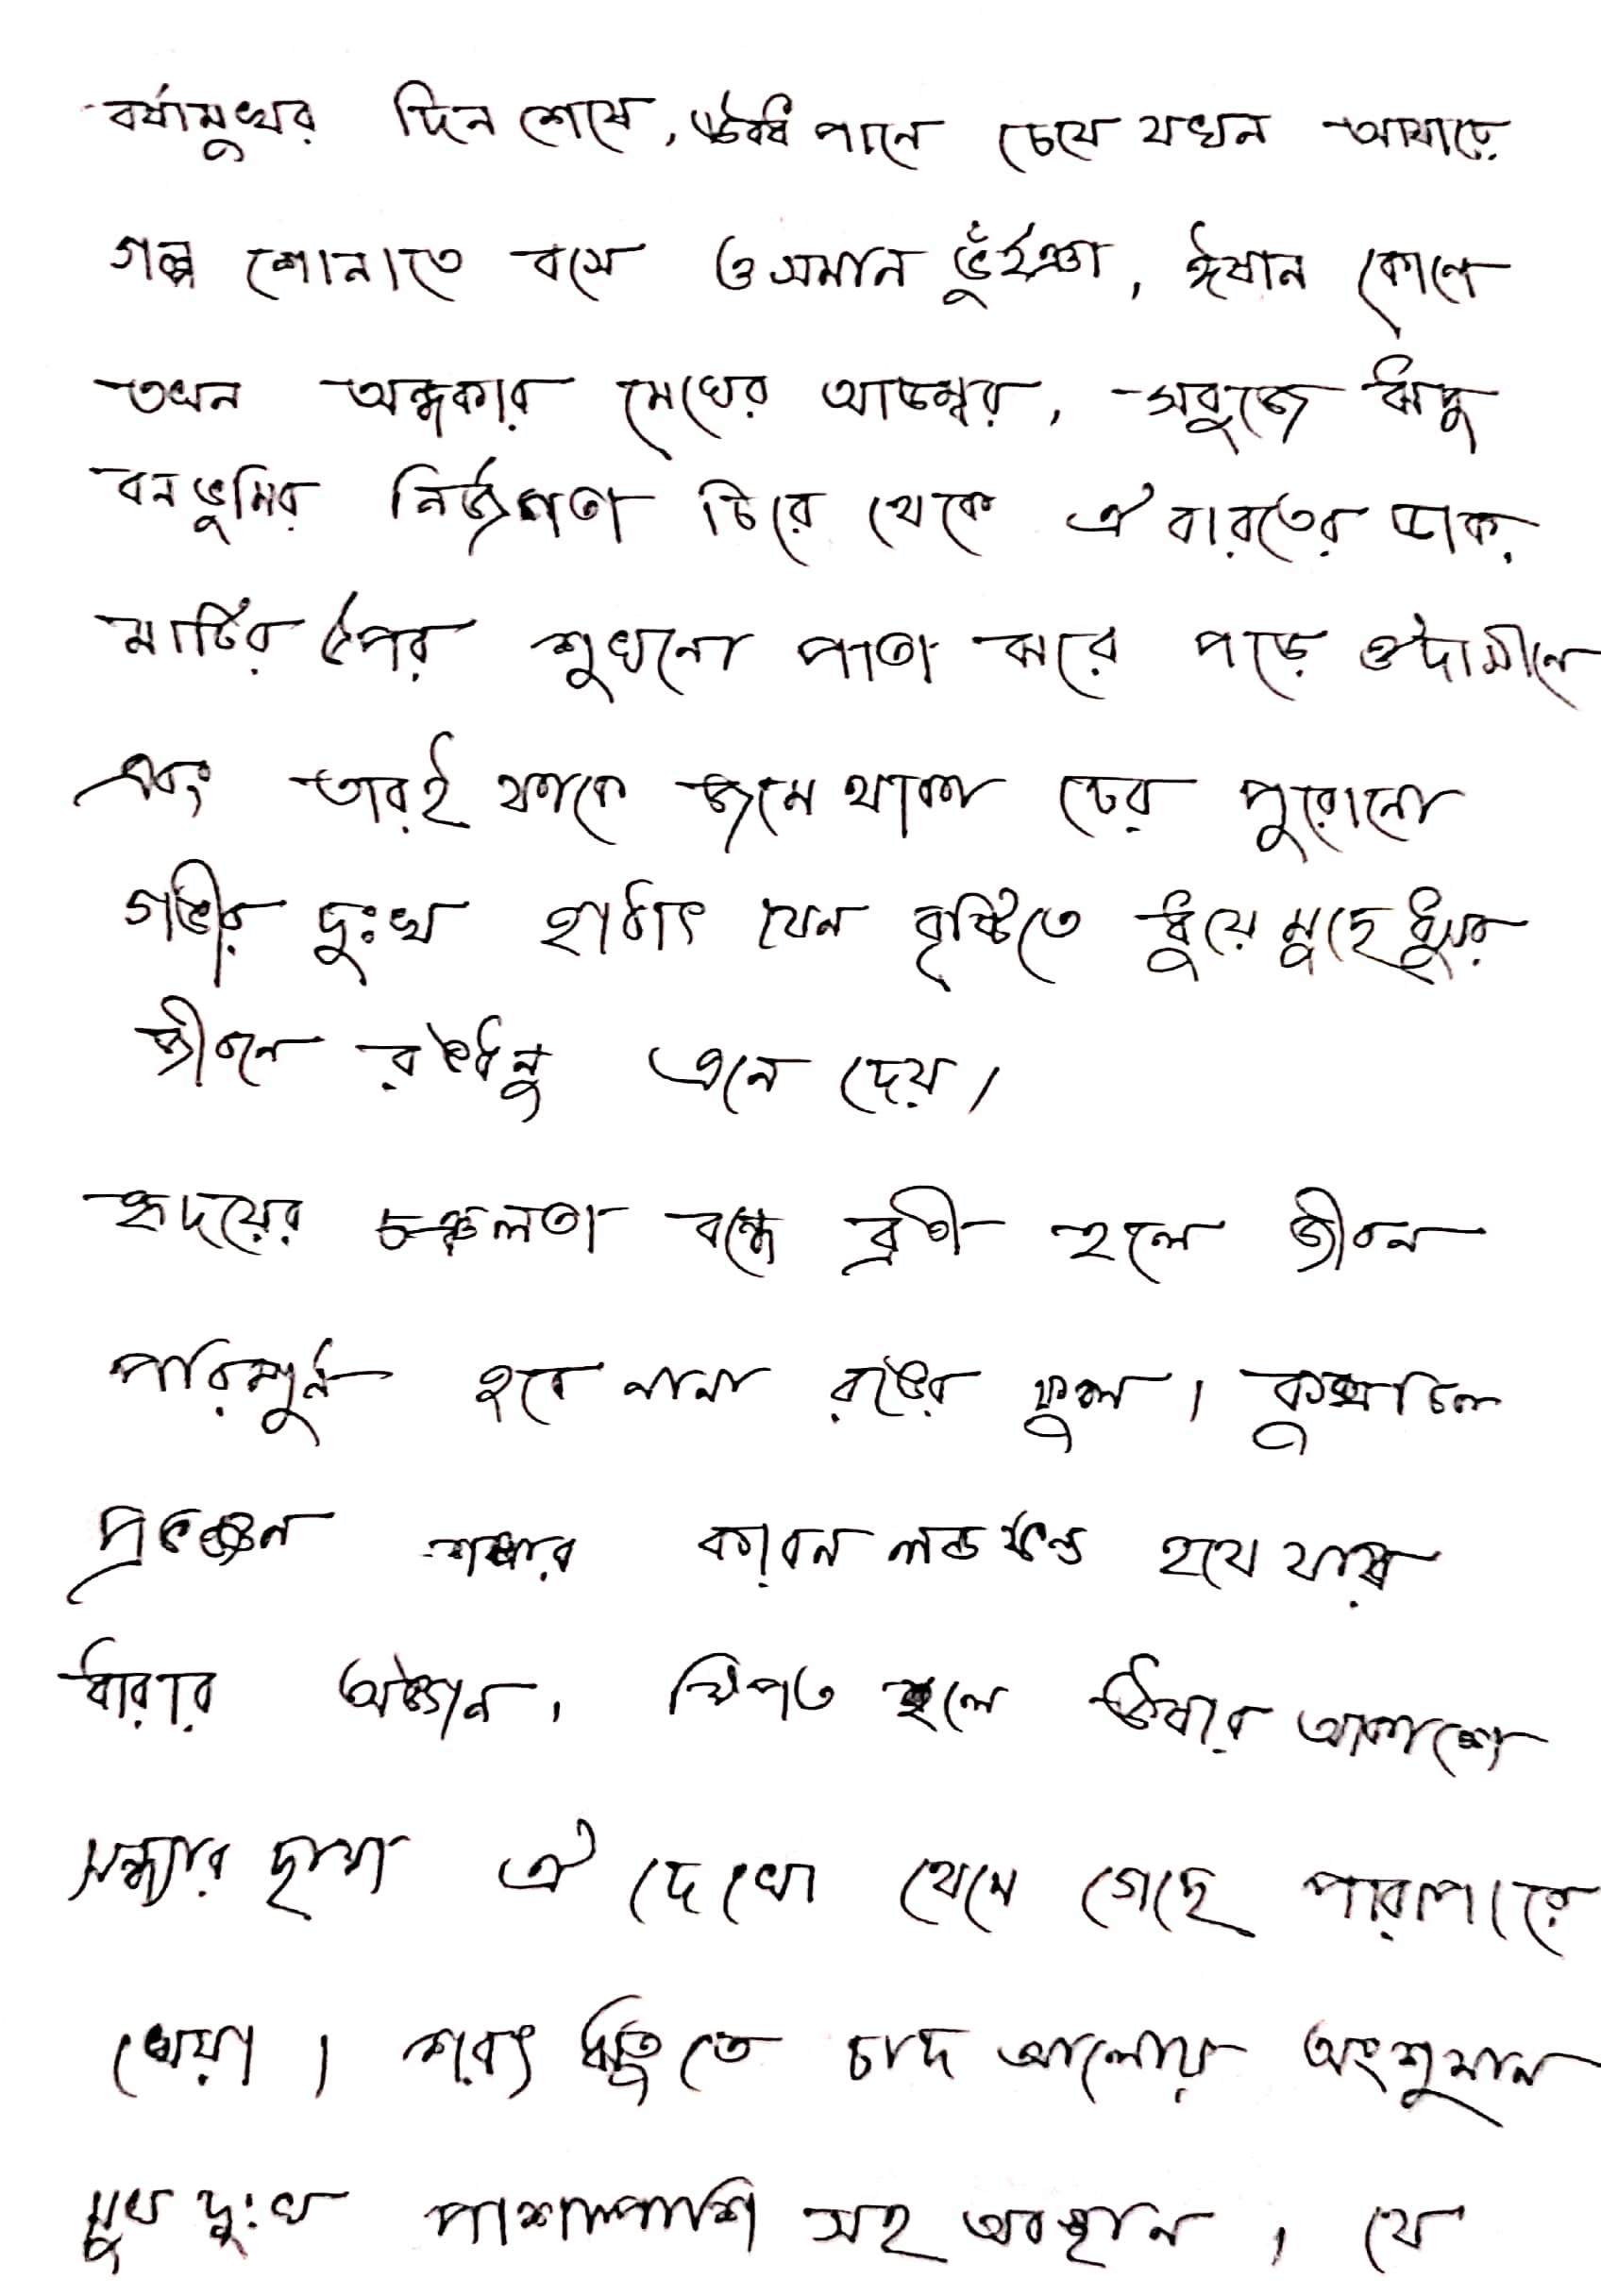 বর্ষামুখর দিন শেষে, ঊর্ধ্ব পানে চেয়ে যখন আষাঢ়ে
গল্প শোনাতে বসে ওসমান ভুঁইঞা, ঈষান কোণে
তখন অন্ধকার মেঘের আড়ম্বর, সবুজে ঋদ্ধ
বনভূমির নির্জনতা চিরে থেকে ঐ বারতের ডাক,
মাটির উপর শুখনো পাতা ঝরে পড়ে ঔদাসীনে
এবং তারই ফাঁকে জমে থাকা ঢের পুরোনো
গভীর দুঃখ হাঠাৎ যেন বৃষ্টিতে ধুয়ে মুছে ধুসর
জীবনে রংধনু এনে দেয়।
হৃদয়ের চঞ্চলতা বন্ধে ব্রতী হলে জীবন
পরিস্পূর্ন হবে নানা রঙের ফুল। কুঞ্ঝটিকা
প্রভঞ্জন শঙ্কার কারন লন্ডভন্ড হয়ে যায়
ধারার অঙ্গন। ক্ষিপ্ত হলে ঊষার আকাশে
সন্ধ্যার ছায়া ঐ দেখো থেমে গেছে পারাপারে
খেয়া। শরৎ ঋতুতে চাদ আলোয় অংশুমান
সুখ দুঃখ পাশাপাশি সহ অবস্থান, যে